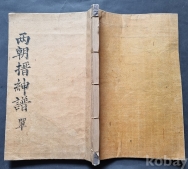 兩朝搢紳譜 單
kobay